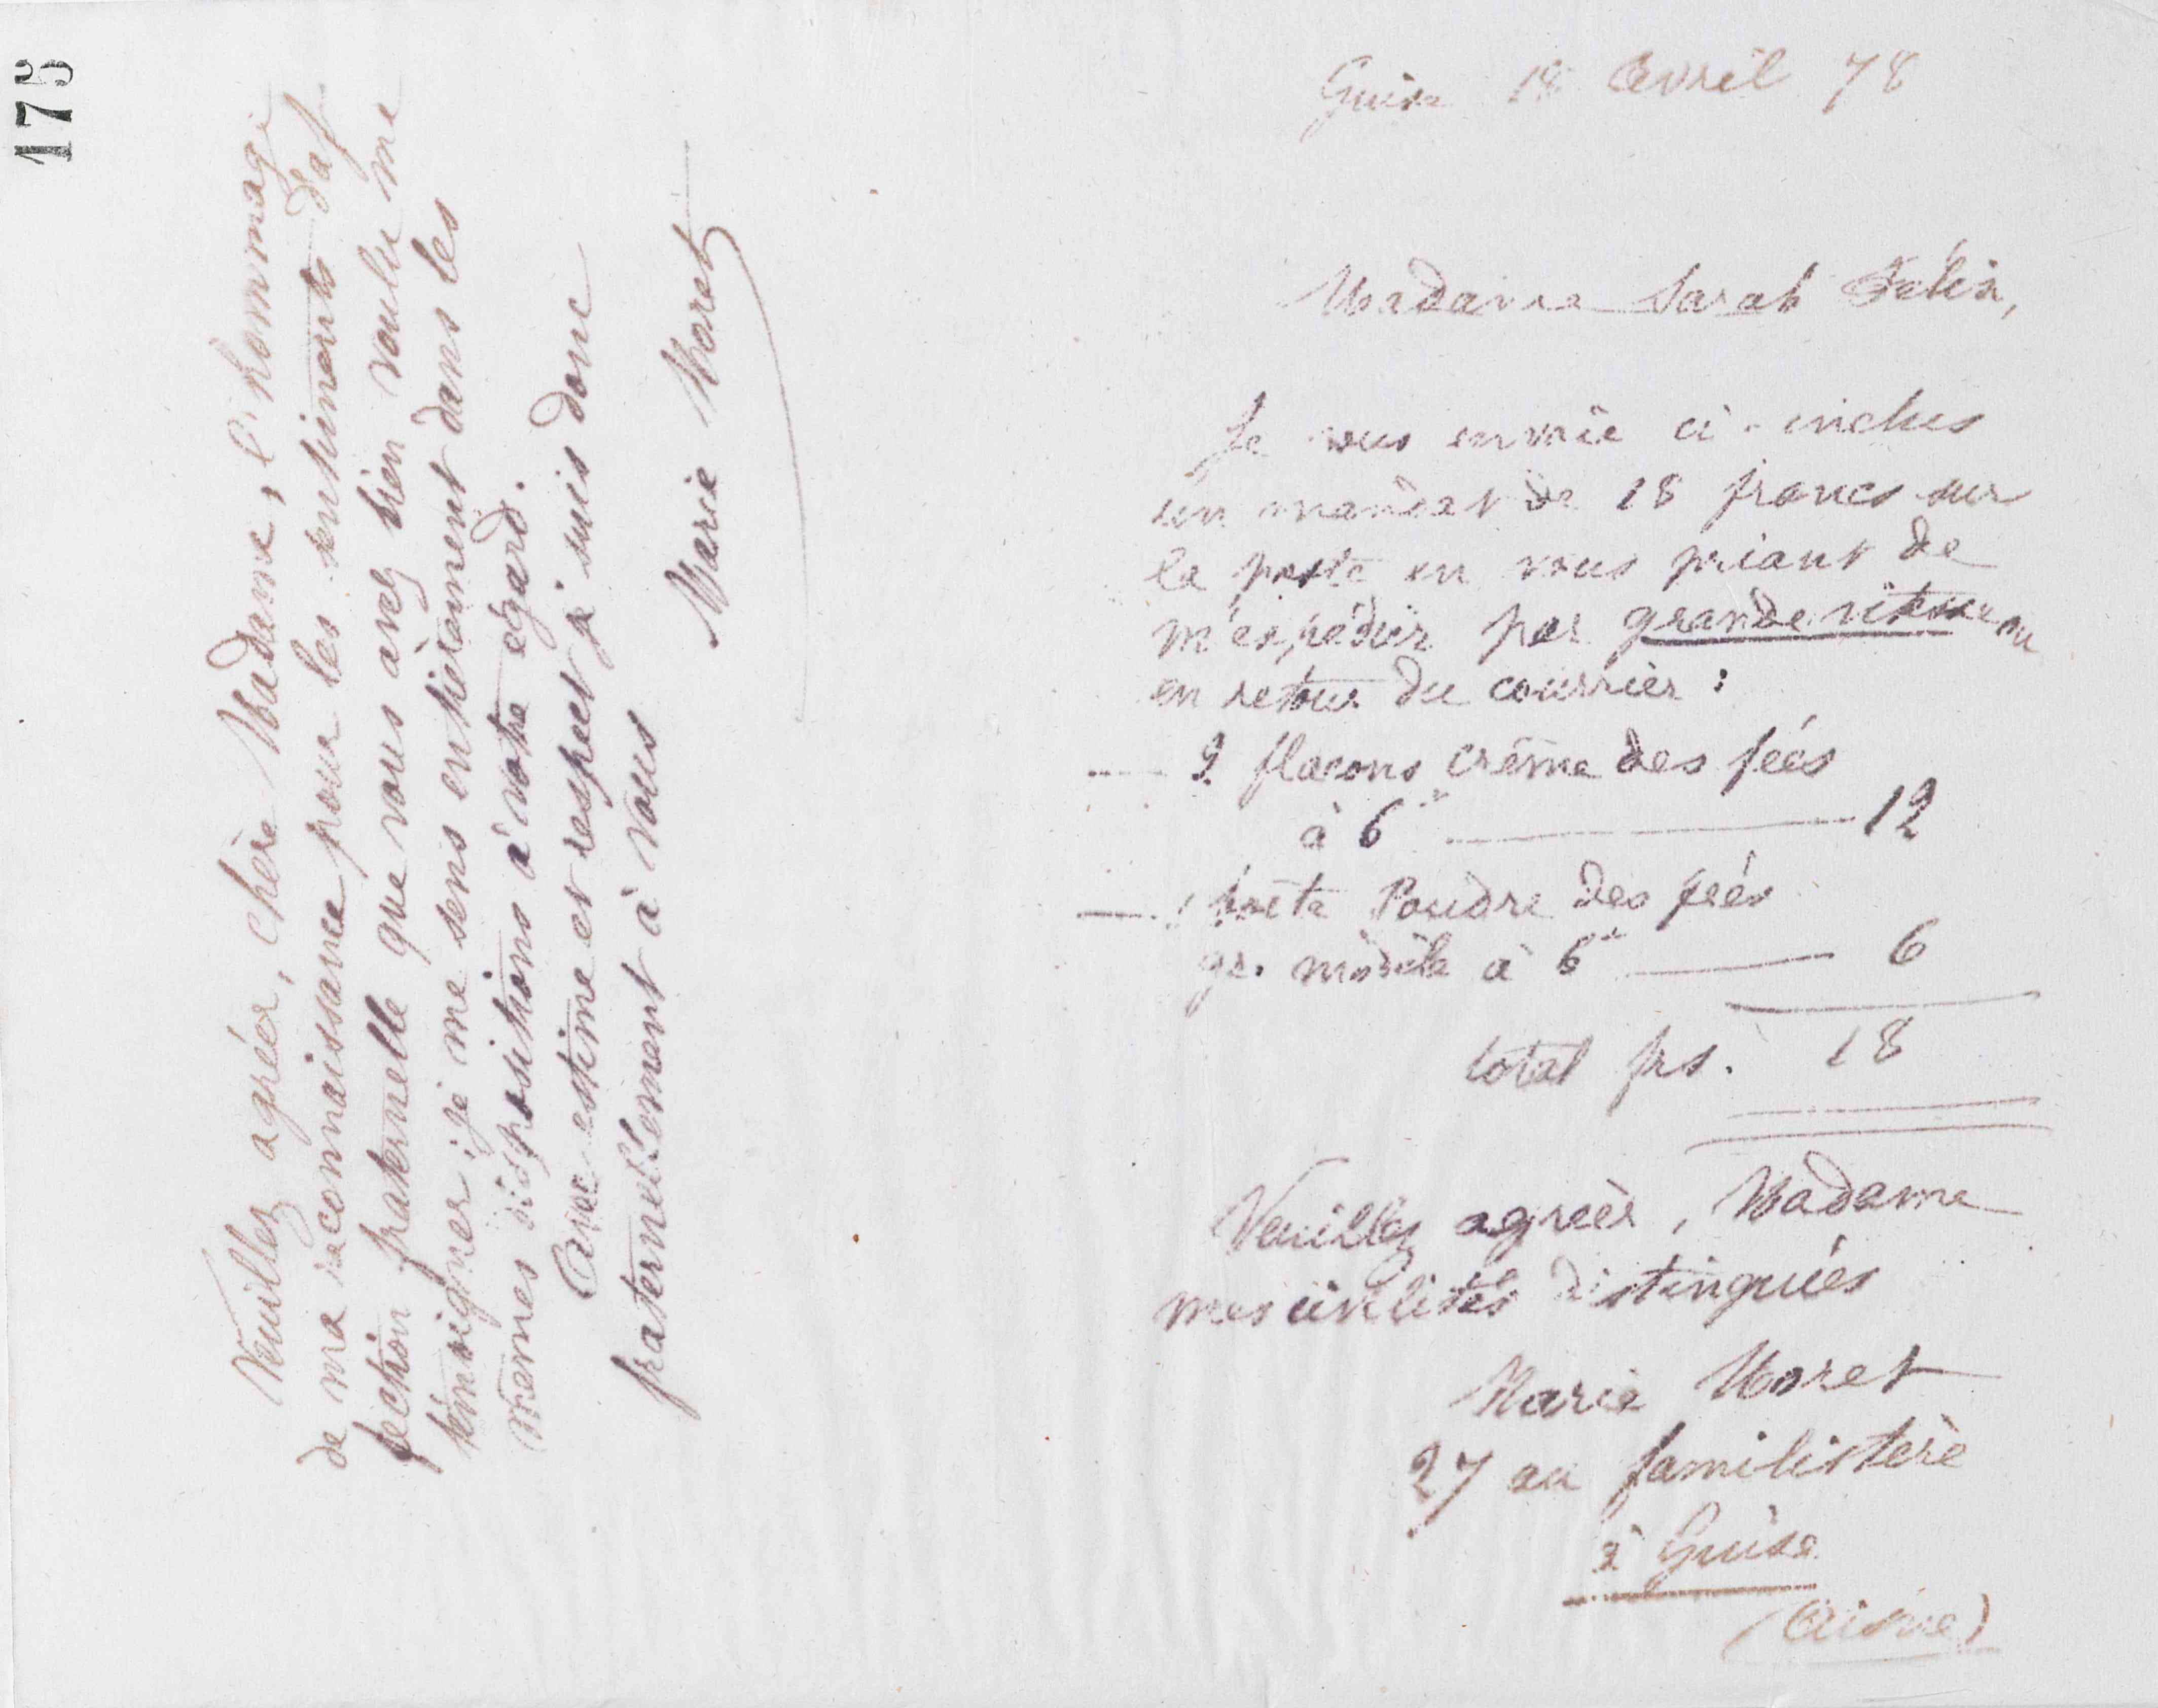 175
Veuillez agréer, chère Madame, l'hommage
de ma reconnaissance pour les sentiments d'af
fection fraternelle que vous avez bien voulu me
témoigner ; je me sens entièrement dans les
mêmes dispositions à votre égard.
Avec estime et respect je suis donc
fraternellement à vous
Marie Moret
Guise 18 Avril 78
Madame Sarah Félix,
Je vous envoie ci-inclus
un mandat de 18 francs sur
la poste en vous priant de
m'expédier par grande vitesse ou
en retour du courrier :
— 2 flacons Crême des fées
à 6 — 12
— 1 boîte Poudre des fées
gr. modèle à 6 — 6
total frs. 18
Veuillez agréer, Madame
mes civilités distinguées
Marie Moret
27 au familistère
à Guise
(Aisne)